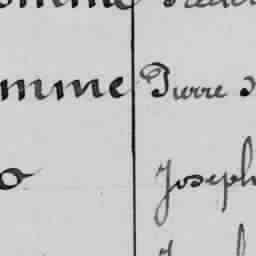 omme
mme Pierre d
o Joseph